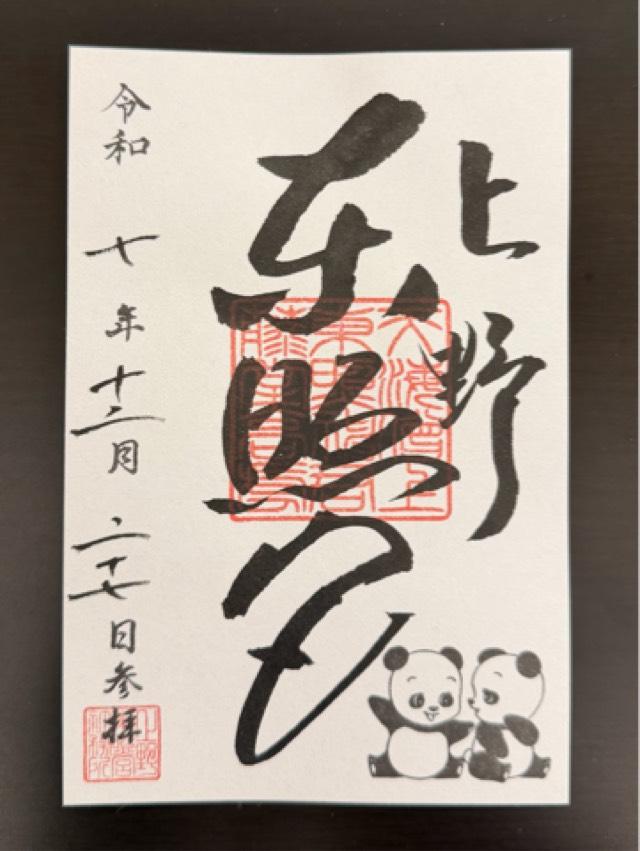 上野
東照宮
令和 七年十二月二十七日参拝